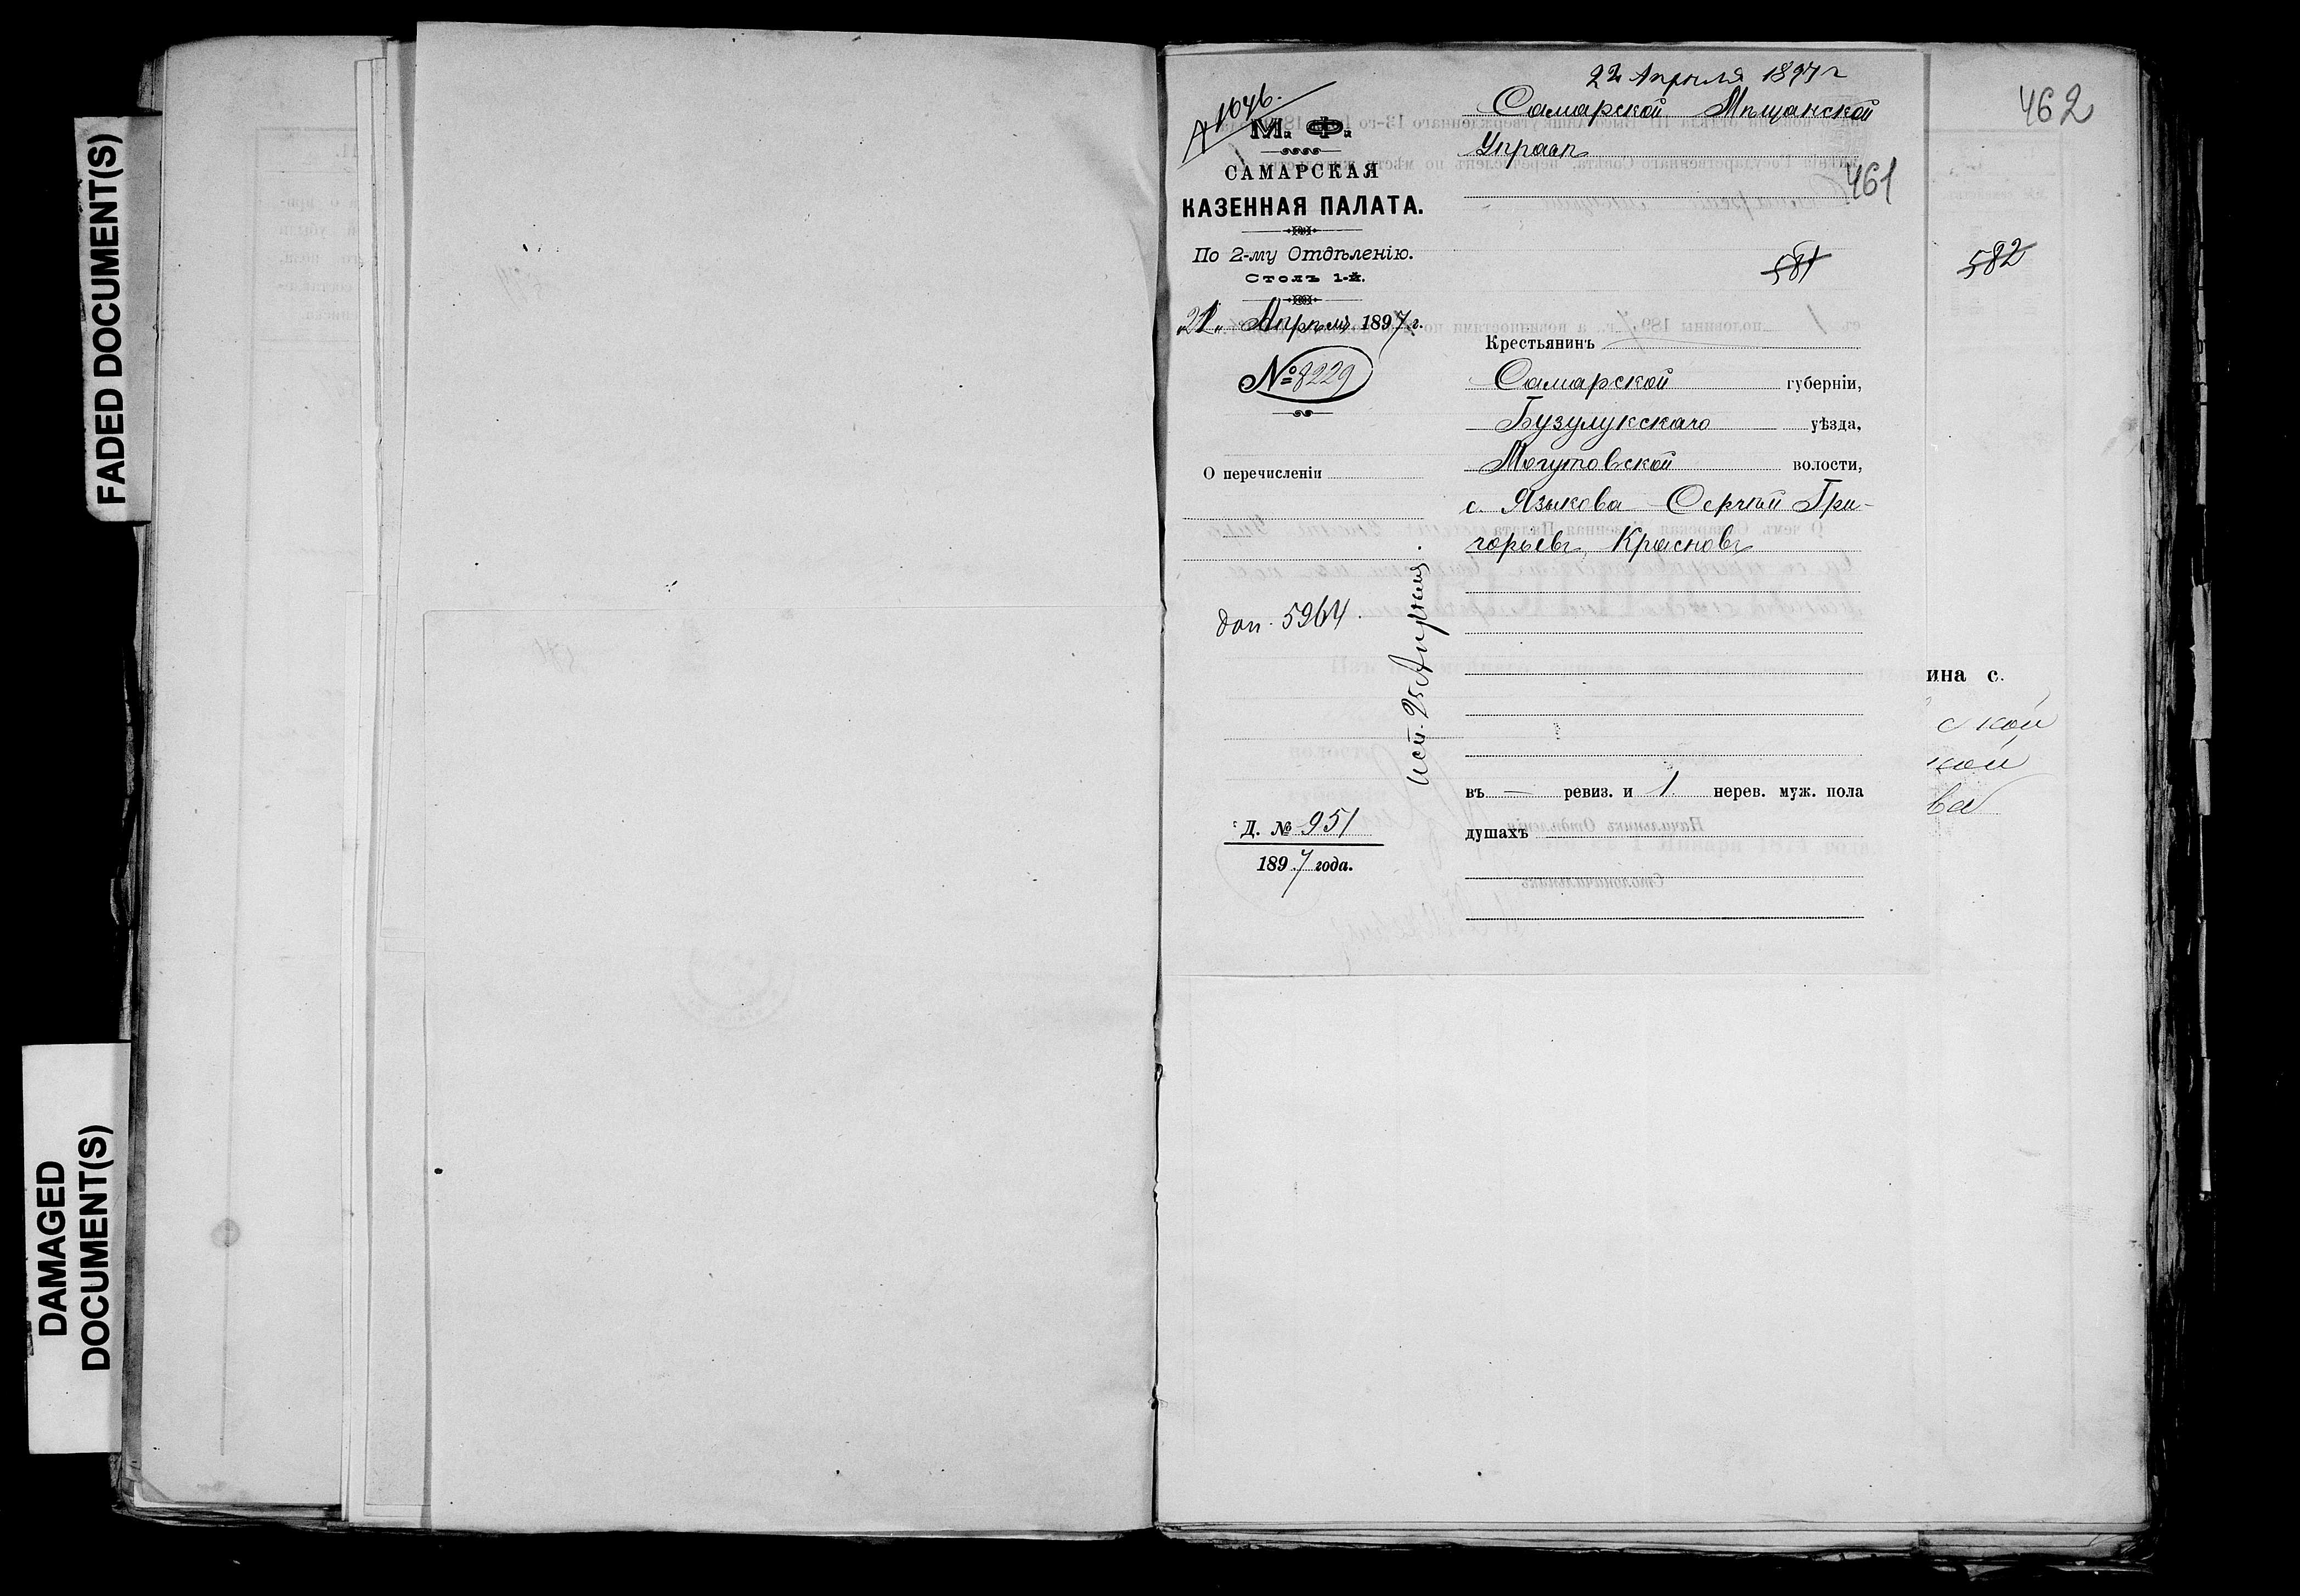 FADED DOCUMENT(S)
DAMAGED
DOCUMENT(S)
1046.
М. Ф.
САМАРСКАЯ
КАЗЕННАЯ ПАЛАТА.
По 2-му Отдѣленію.
Столъ 1-й.
„21„ Апрѣля 1897 г.
№ 8229
О перечисленіи
доп. 5964
исп. 25 Апрѣля
Д. № 951
1897 года.
22 Апрѣля 1897 г
Самарской Мѣщанской
Управѣ
461
581
Крестьянинъ
Самарской губерніи,
Бузулукскаго уѣзда,
Могутовской волости,
с. Языкова Сергѣй Гри-
горьевъ Красновъ
въ — ревиз. и 1 нерев. муж. пола
душахъ
462
582
ина с.
ской
кой
ва